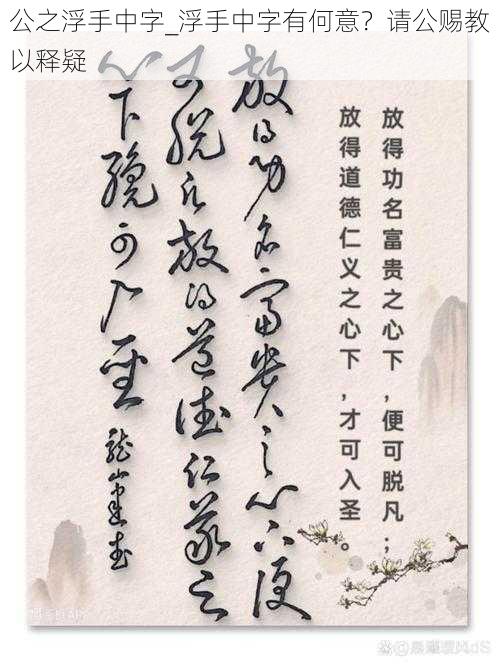 公之浮手中字_浮手中字有何意？请公赐教
以释疑
放得功名富贵之心下，便可脱凡；
放得道德仁义之心下，才可入圣。
放得功名富貴之心下便
可脱凡放得道德仁義之
心下纔可入聖